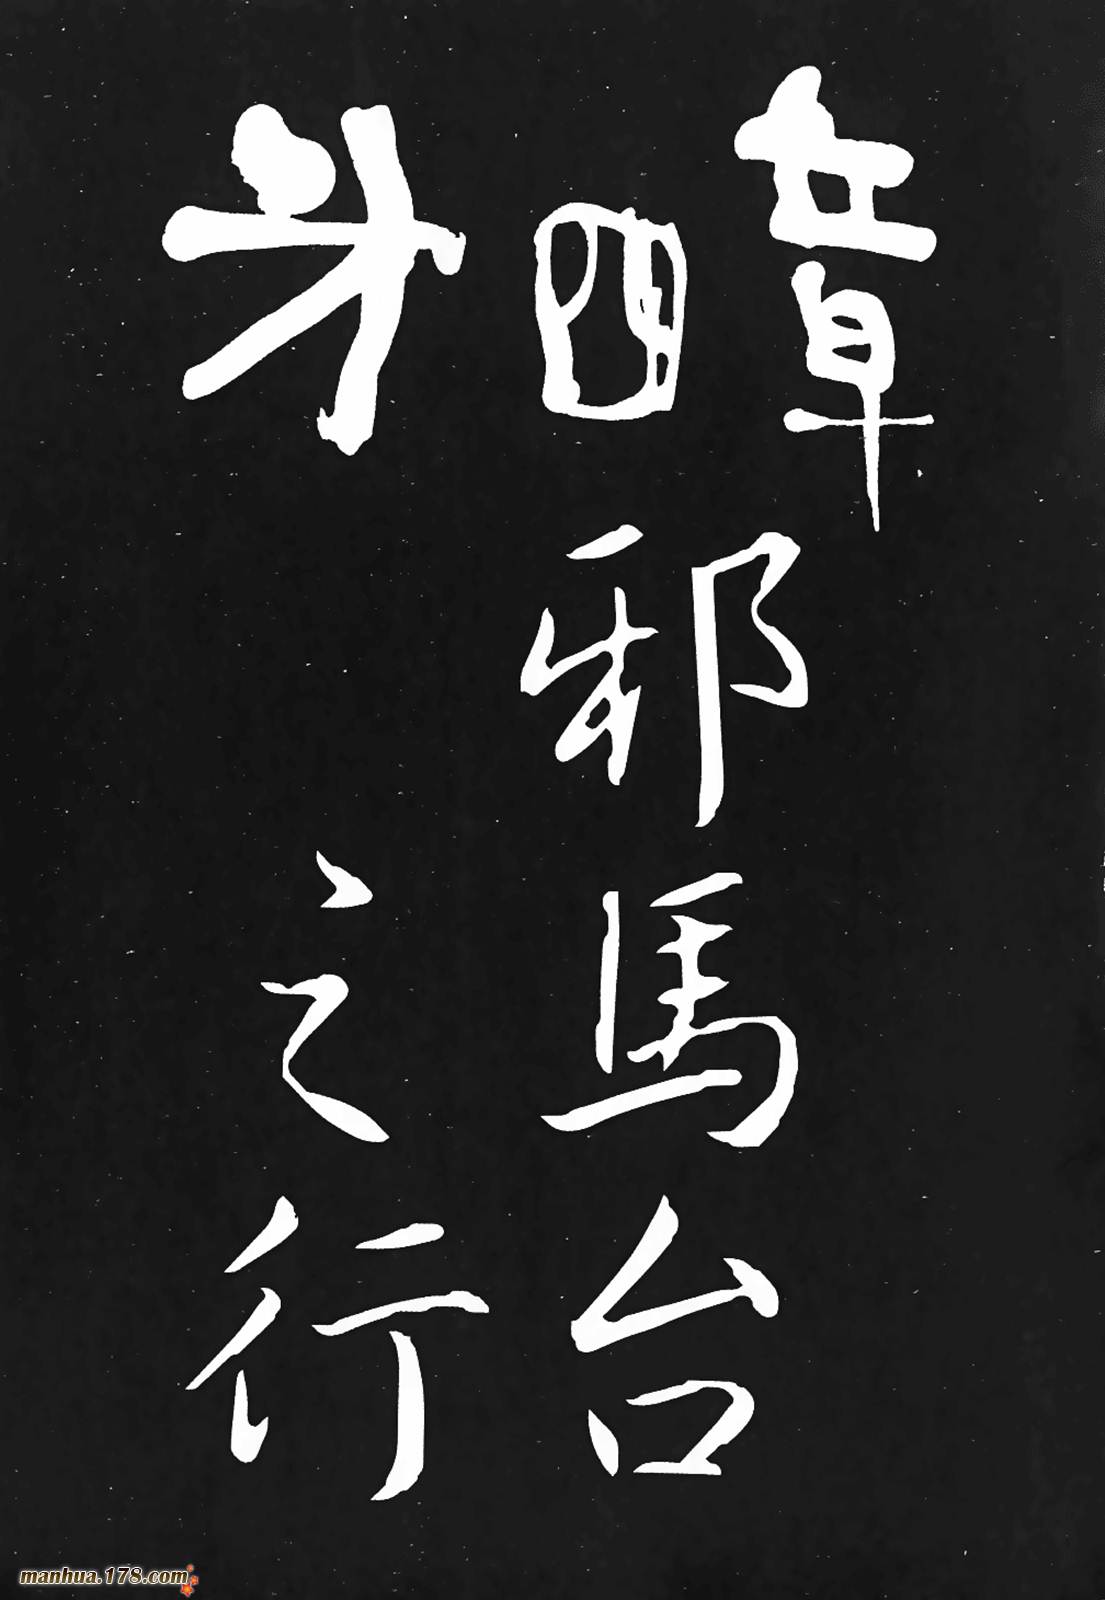 第四章
邪馬台
之行
manhua.178.com